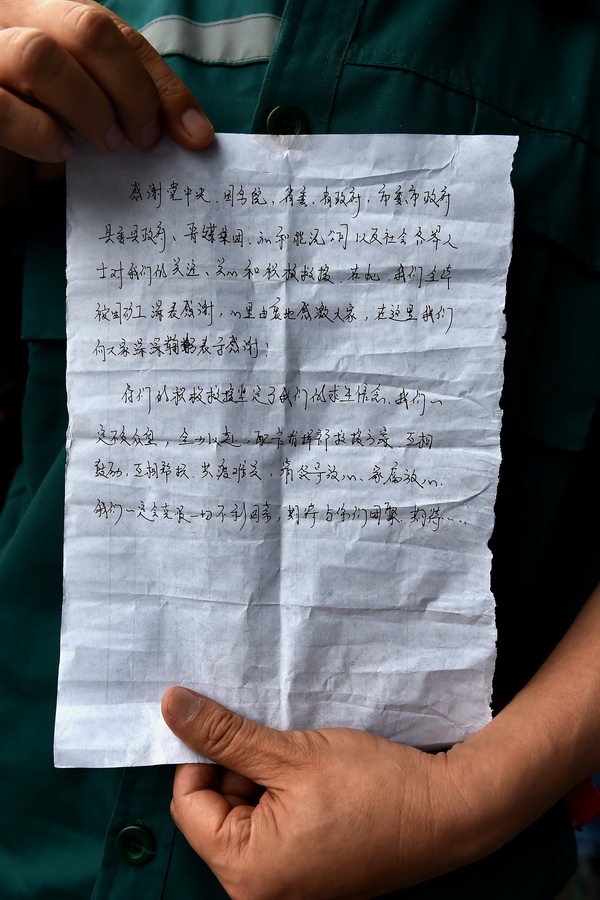 感谢党中央、国务院、省委、省政府、市委市政府
县委县政府、晋煤集团、和能源公司以及社会各界人
士对我们的关注、关心和积极救援. 在此, 我们全体
被困矿工深表感谢, 心里由衷地感激大家, 在这里我们
向大家深深鞠躬表示感谢!
你们的积极救援坚定了我们的求生信念. 我们一
定众志, 全力以赴, 配合指挥部救援方案. 互相
鼓励, 互相帮扶. 共渡难关, 请领导放心、家属放心.
我们一定会克服一切不利因素, 期待与你们团聚. 期待...